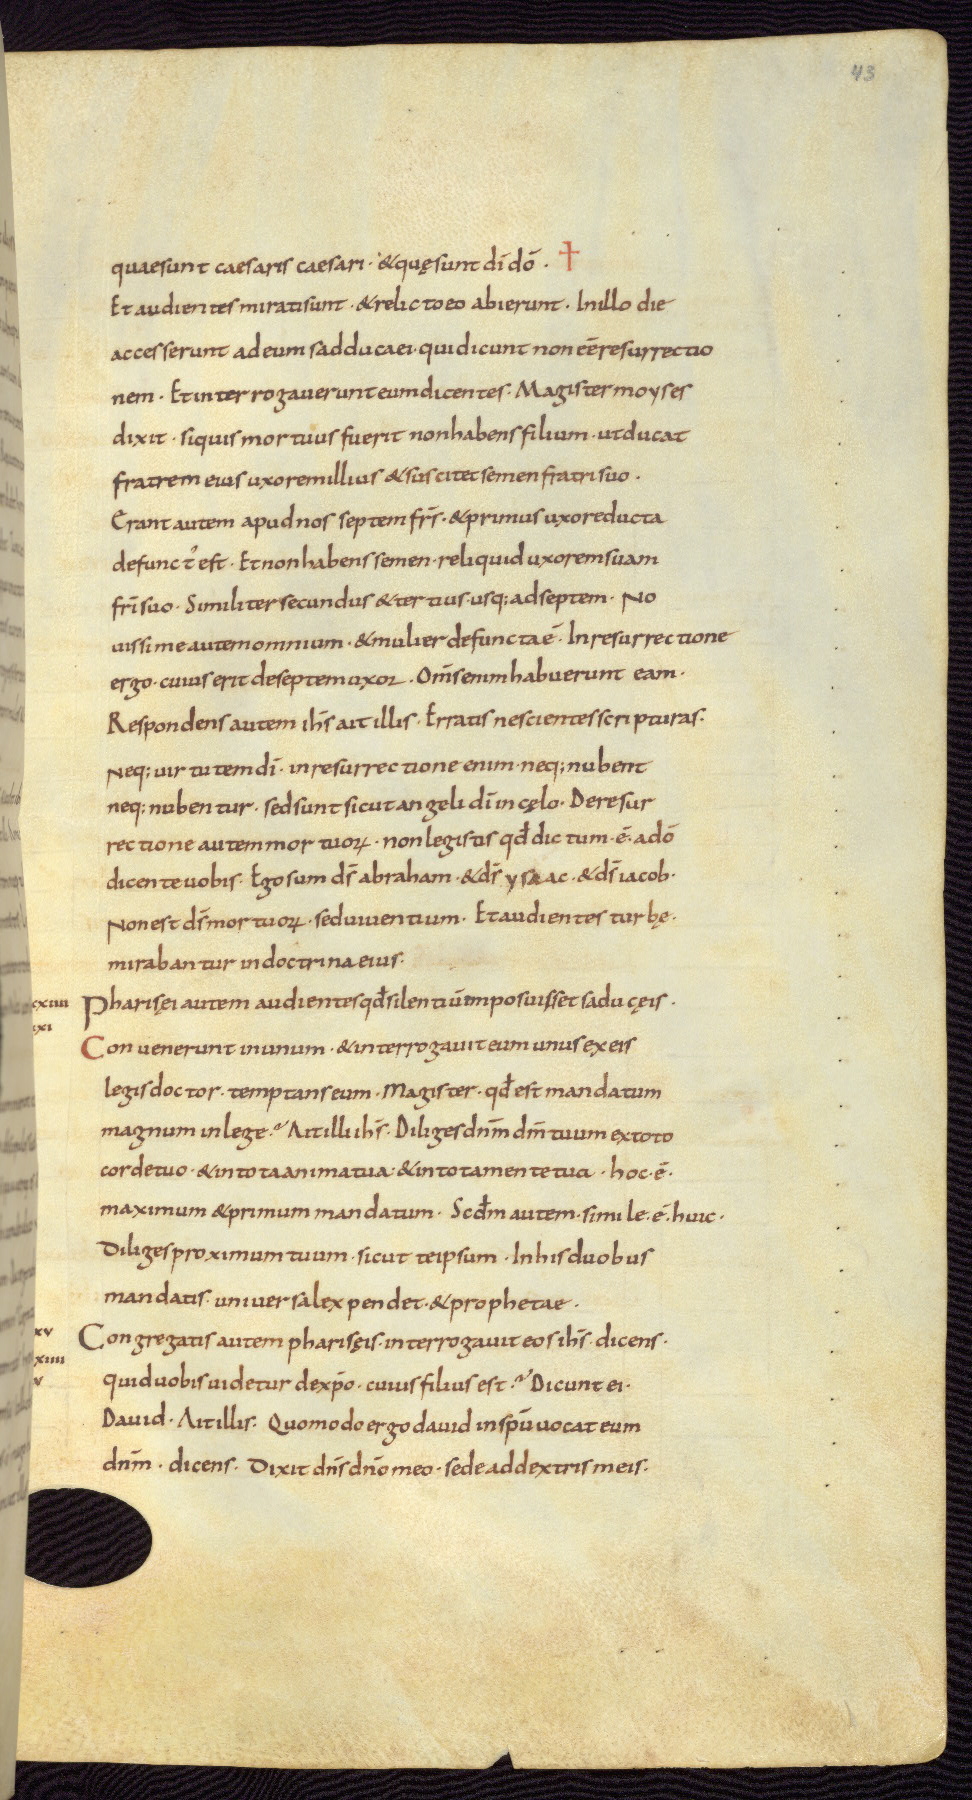 43
quae sunt caesaris caesari · & quę sunt dī dō · †
Et audientes mirati sunt · & relicto eo abierunt · In illo die
accesserunt ad eum sadducaei · qui dicunt non eē resurrectio
nem · Et interrogaverunt eum dicentes · Magister moyses
dixit · si quis mortuus fuerit non habens filium · ut ducat
fratrem eius uxorem illius & suscitet semen fratri suo ·
Erant autem apud nos septem frs̄ · & primus uxore ducta
defunct᾽ est · Et non habens semen · reliquid uxorem suam
frī suo · Similiter secundus & tertius · usq; ad septem · No
uissime autem omnium · & mulier defuncta ē · In resurrectione
ergo · cuius erit de septem uxor · Om̄s enim habuerunt eam ·
Respondens autem ihs̄ ait illis · Erratis nescientes scripturas ·
Neq; uirtutem dī · in resurrectione enim · neq; nubent
neq; nubentur · sed sunt sicut angeli dī in cęlo · De resur
rectione autem mortuoꝝ · non legistis qđ dictum · ē · a dō
dicente uobis · Ego sum ds̄ abraham · & ds̄ ysaac · & ds̄ iacob ·
Non est ds̄ mortuoꝝ · sed uiuentium · Et audientes turbę ·
mirabantur in doctrina eius ·
cxiiii Pharisęi autem audientes qđ silentiū imposuisset saducęis ·
xxi Convenerunt in unum · & interrogauit eum unus ex eis
legis doctor · temptans eum · Magister · qđ est mandatum
magnum in lege? Ait illi ihs̄ · Diliges dnm̄ dm̄ tuum ex toto
corde tuo · & in tota anima tua · & in tota mente tua · hoc · ē ·
maximum & primum mandatum · Scđm autem · simile · ē · huic ·
Diliges proximum tuum · sicut te ipsum · In his duobus
mandatis · universa lex pendet · & prophetae ·
xv Congregatis autem pharisęis · interrogauit eos ihs̄ · dicens ·
xiiii
v quid uobis uidetur de xp̄o · cuius filius est? Dicunt ei ·
David · Ait illis · Quomodo ergo david in spū uocat eum
dnm̄ · dicens · Dixit dns̄ dnō meo · sede ad dextris meis ·